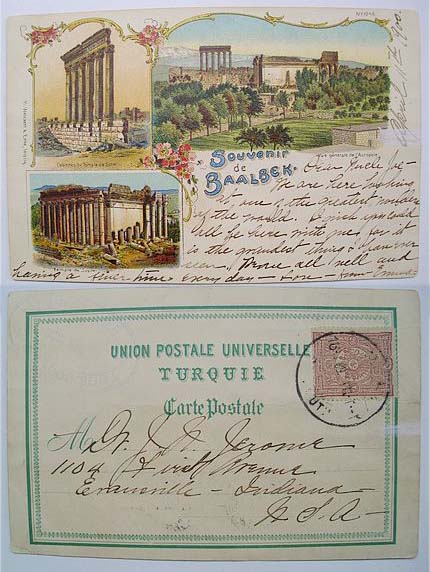 April 11th 1900.
Souvenir
de
BAALBEK.
Vue générale de l'Acropole
Colonnes du Temple du Soleil
Dear Uncle Joe –
We are here looking
at one of the greatest wonders
of the world. I wish you could
all be here with me for it
is the grandest thing I have ever
seen. We are all well and
having a fine time every day – love –
UNION POSTALE UNIVERSELLE
TURQUIE
Carte Postale
Jerome
1104 First Avenue
Evansville – Indiana
U S A –